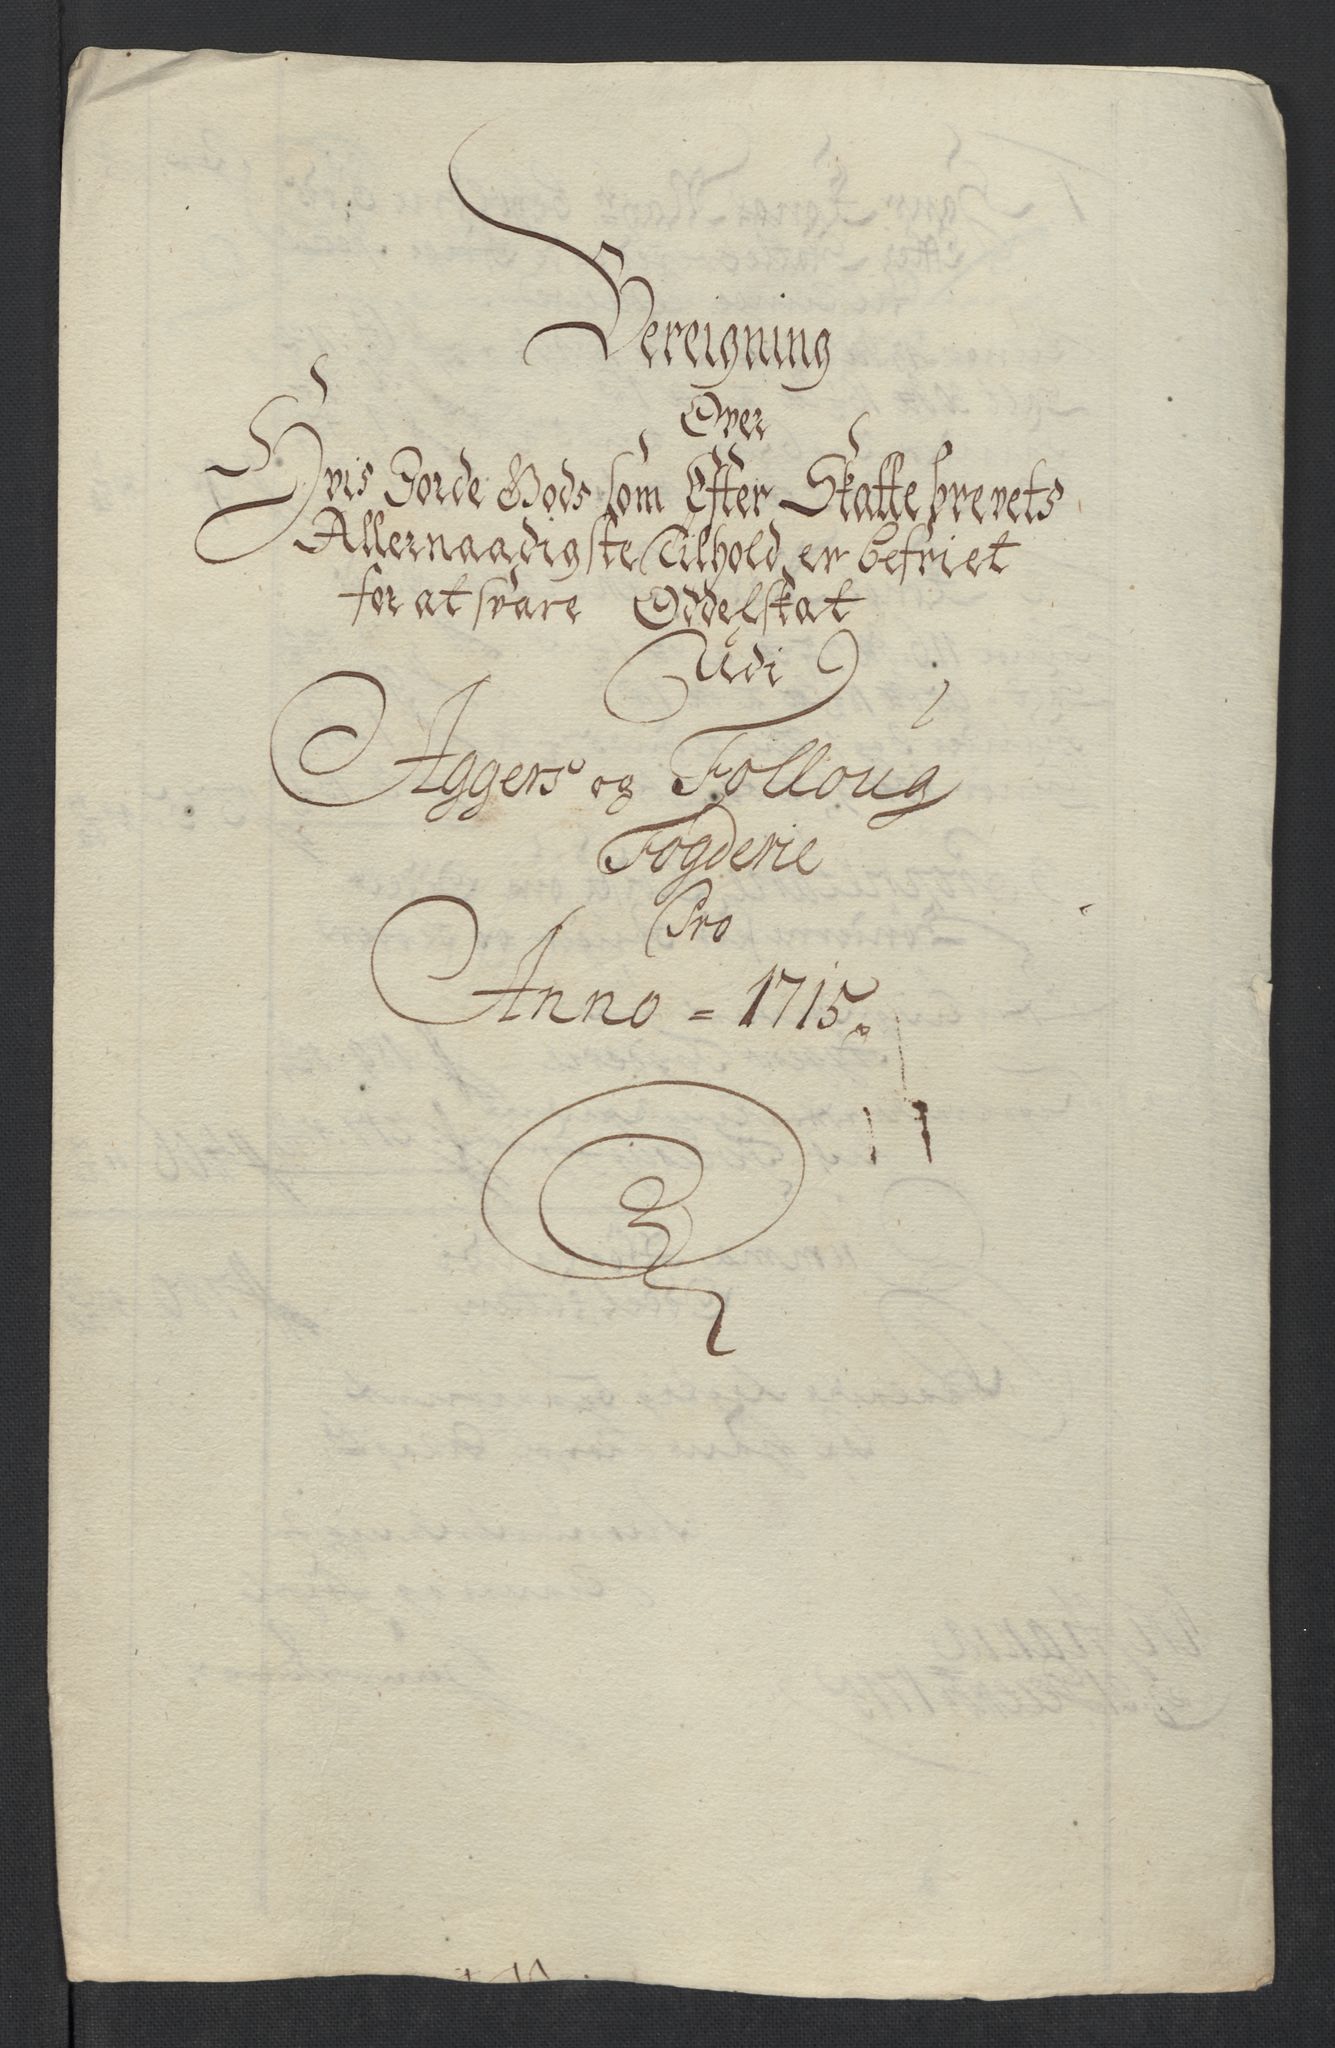 Bereigning
Over
Hvis Jorde Gods som Efter Skattebrevets
Allernaadigste Tilhold er befriet
for at svare Oddelskat
Udi
Aggers og Folloug
Fogderie
Pro
Anno = 1715.